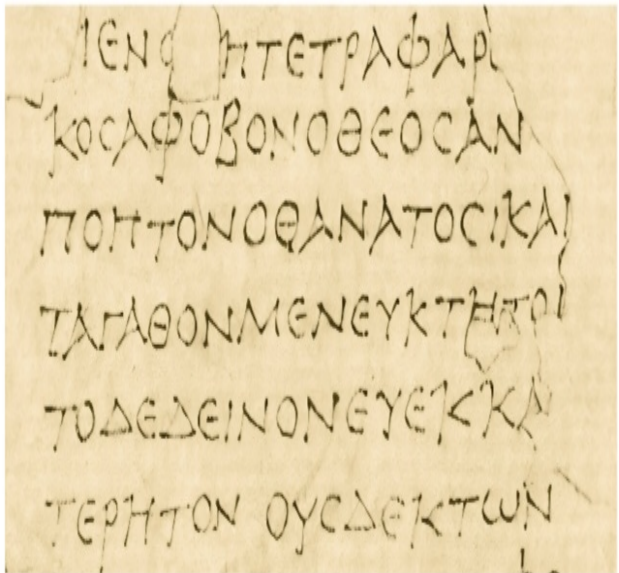 ΙΕΝΟ ΗΤΕΤΡΑΦΑΡΙ
ΚΟϹΑΦΟΒΟΝΟΘΕΟϹΑΝ
ΠΟΗΤΟΝΟΘΑΝΑΤΟϹΙΚΑΙ
ΤΑΓΑΘΟΝΜΕΝΕΥΚΤΗΤΟΙ
ΤΟΔΕΔΕΙΝΟΝΕΥΕΚΚΑ
ΤΕΡΗΤΟΝ ΟΥϹΔΕΚΤΩΝ